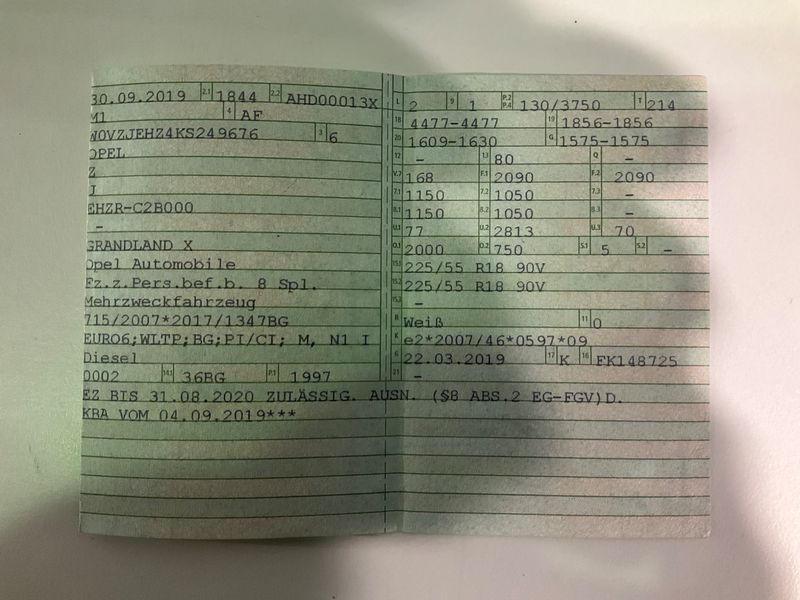 30.09.2019 2.1 1844 2.2 AHD00013X
M1 4 AF
W0VZJEHZ4KS249676 3 6
OPEL
Z
J
EHZR-C2B000
-
GRANDLAND X
Opel Automobile
Fz.z.Pers.bef.b. 8 Spl.
Mehrzweckfahrzeug
715/2007*2017/1347BG
EURO6;WLTP;BG;PI/CI; M, N1 I
Diesel
0002 14.1 36BG P.1 1997
L 2 9 1 P.2 P.4 130/3750 T 214
18 4477-4477 19 1856-1856
20 1609-1630 G 1575-1575
12 - 13 80 Q -
V.7 168 F.1 2090 F.2 2090
7.1 1150 7.2 1050 7.3 -
8.1 1150 8.2 1050 8.3 -
U.1 77 U.2 2813 U.3 70
O.1 2000 O.2 750 S.1 5 S.2 -
15.1 225/55 R18 90V
15.2 225/55 R18 90V
15.3 -
R Weiß 11 0
K e2*2007/46*0597*09
6 22.03.2019 17 K 16 FK148725
21 -
EZ BIS 31.08.2020 ZULÄSSIG. AUSN. (§8 ABS.2 EG-FGV)D.
KBA VOM 04.09.2019***